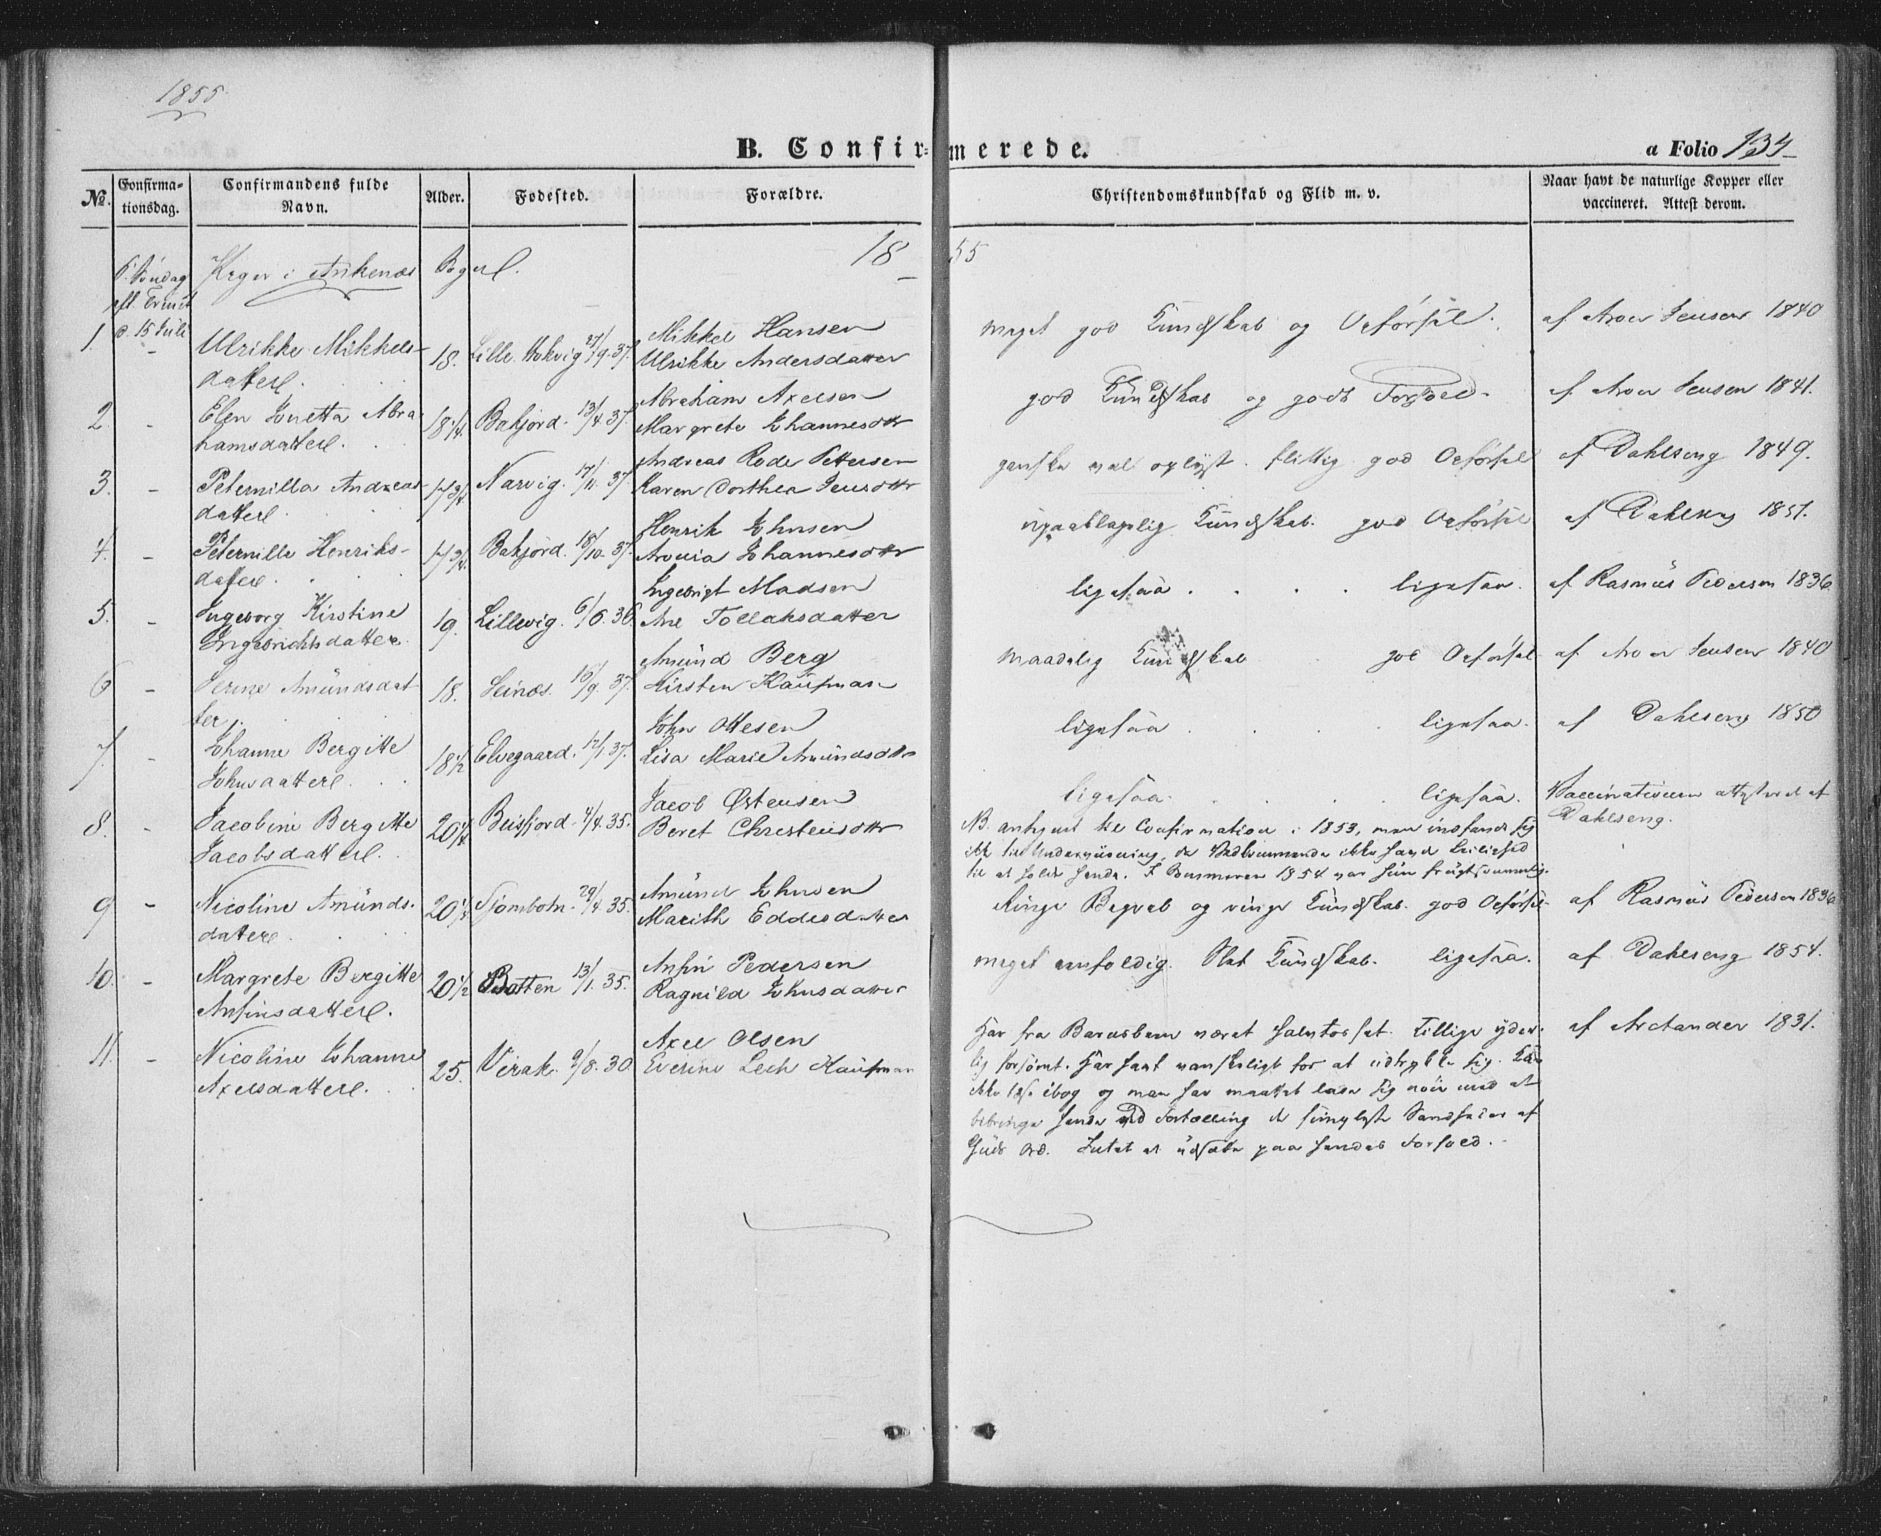 1855
B. Confirmerede.
a Folio 134
No.
Confirmationsdag.
Confirmandens fulde Navn.
Alder.
Fødested.
Forældre.
Christendomskundskab og Flid m. v.
Naar havt de naturlige Kopper eller vaccineret. Attest derom.
1855
6. Søndag eft. Trinit d. 15 Juli
Piger i Ankenæs Sogn
1. - Ulrikke Mikkelsdatter. 18. Lille Hokvig 17/9 37. Mikkel Hansen
Ulrikke Andersdatter
meget god Kundskab og Opførsel. af Aron Jensen 1840
2. - Elen Jonetta Abrahamsdatter. 18 1/4. Bakjord. 13/4 37. Abraham Axelsen
Margrete Johannesdttr
god Kundskab og godt Forhold. af Aron Jensen 1841.
3. - Peternilla Andreasdatter 17 3/4 Narvig. 17/11. 37. Andreas Rode Pettersen
Karen Dorthea Jensdttr
ganske vel oplyst. flittig god Opførsel af Dahlseng 1849.
4. - Peternille Henriksdatter. 17 3/4. Bakjord. 18/10. 37. Henrik Johnsen
Johannesdttr
upaaklagelig Kundskab. god Opførsel af Dahlseng 1851.
5. - Ingeborg Kirstine Ingebrichtsdatter. 19. Lillevig. 6/6. 36. Ingebrigt Madsen
Ane Tollaksdatter
ligesaa . . . . ligesaa. af Rasmus Pedersen 1836
6 - Serine Amundsdatter. 18. Seinæs. 16/9. 37. Amund Berg
Kirsten Kaufman
maadelig Kundskab god Opførsel af Aron Jensen 1840
7. - Johanne Bergitte Johnsdatter. 18 1/2 Elvegaard. 12/1 37. John Ottesen
Lisa Marie Amundsdttr
ligesaa . . . ligesaa. af Dahlseng 1850
8. - Jacobine Bergitte Jacobsdatter. 20 1/4 Beisfjord. 4/4. 35. Jacob Østensen
Beret Christensdttr
ligesaa . . . ligesaa. Vaccinationen attesteret af Dahlseng.
NB. antegnet til Confirmation i 1853, men indfandt sig
ikke til Underviisning, da Vedkommende ikke havde Leilighed
til at holde hende. I Sommeren 1854 var hun frugtsommelig.
9 - Nicoline Amundsdatter. 20 1/4 Sjombotn. 29/4 35. Amund Johnsen
Marith Eddesdatter
Ringe Begreb og ringe Kundskab. god Opførsel. af Rasmus Pedersen 1836
10. - Margrete Bergitte Anfinsdatter. 20 1/2 Botten 13/1. 35. Anfin Pedersen
Ragnild Johnsdatter
meget eenfoldig. Slet Kundskab. ligesaa. af Dahlseng 1854.
11. - Nicoline Johanne Axelsdatter. 25. Virak. 9/8. 30. Axel Olsen
Everine Lech Kaufman
af Archander 1831.
Har fra Barnsbeen været halvtosset. Tillige yder-
lig forsømt. Har havt vanskeligt for at udtrykke sig. Kan
ikke læse i bog og man har maattet lade sig nøie med at
bibringe hende ved Fortælling de simpleste Sandheder af
Guds Ord. Intet at udsætte paa hendes Forhold.